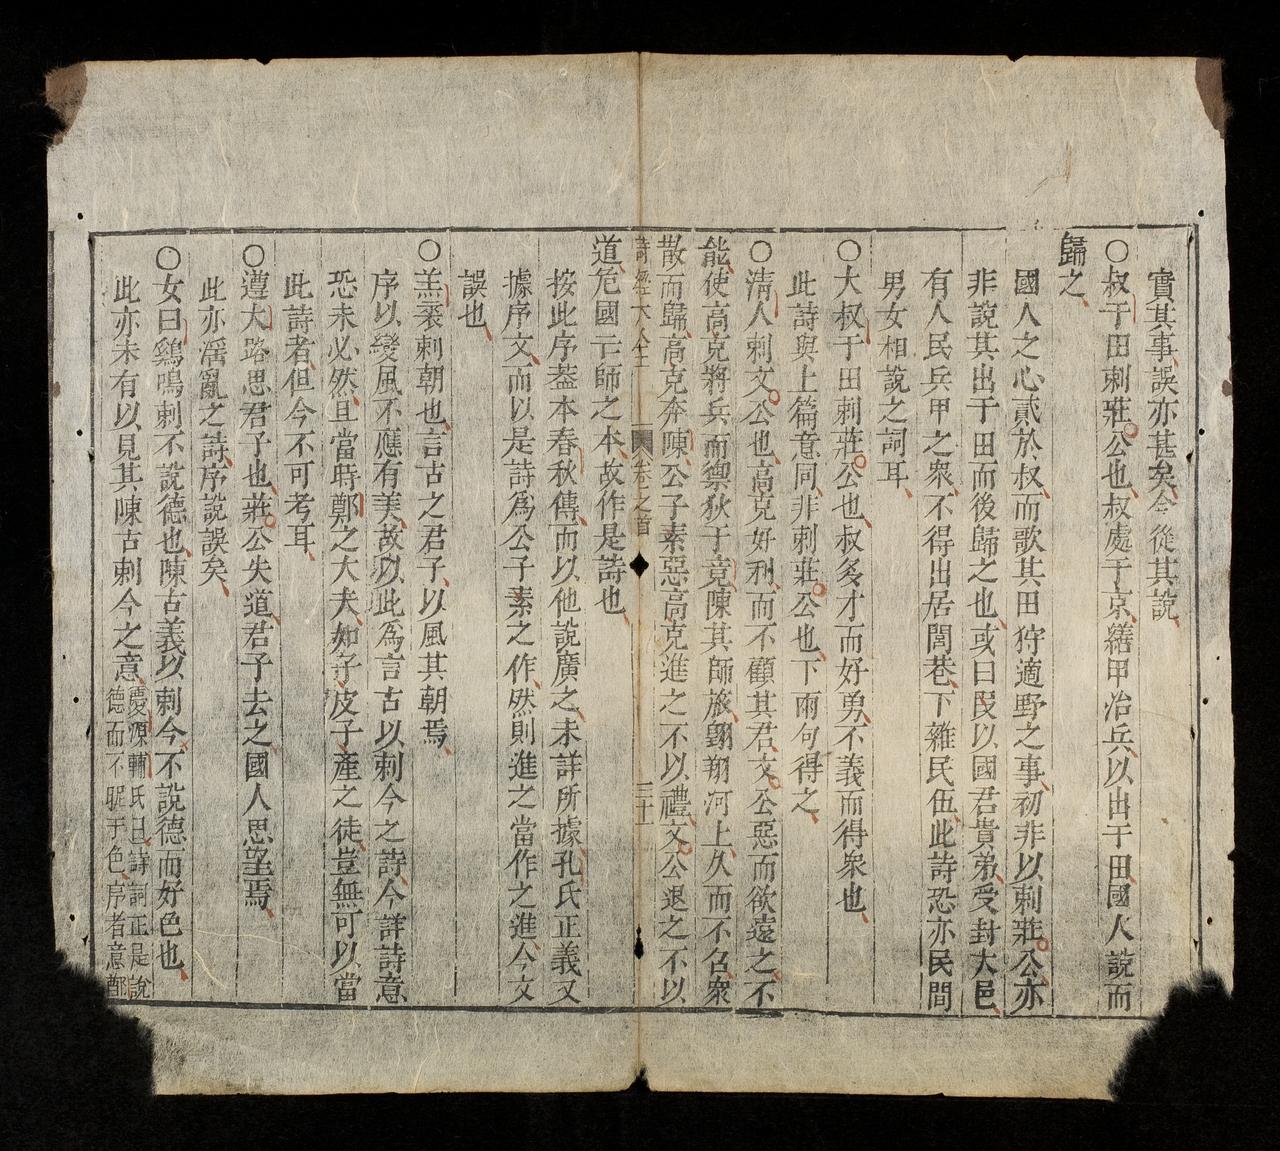 實其事誤亦甚矣今從其說
○叔于田刺莊公也叔處于京繕甲治兵以出于田國人說而
歸之
國人之心貳於叔而歌其田狩適野之事初非以刺莊公亦
非說其出于田而後歸之也或曰段以國君貴弟受封大邑
有人民兵甲之衆不得出居閭巷下雜民伍此詩恐亦民間
男女相說之詞耳
○大叔于田刺莊公也叔多才而好勇不義而得衆也
此詩與上篇意同非刺莊公也下兩句得之
○清人刺文公也高克好利而不顧其君文公惡而欲遠之不
能使高克將兵而禦狄于竟陳其師旅翺翔河上久而不召衆
散而歸高克奔陳公子素惡高克進之不以禮文公退之不以
詩經大全 卷之首 三十一
道危國亡師之本故作是詩也
按此序葢本春秋傳而以他說廣之未詳所據孔氏正義又
據序文而以是詩爲公子素之作然則進之當作之進今文
誤也
○羔裘刺朝也言古之君子以風其朝焉
序以變風不應有美故以此爲言古以刺今之詩今詳詩意
恐未必然且當時鄭之大夫如子皮子產之徒豈無可以當
此詩者但今不可考耳
○遵大路思君子也莊公失道君子去之國人思望焉
此亦淫亂之詩序說誤矣
○女曰鷄鳴刺不說德也陳古義以刺今不說德而好色也
此亦未有以見其陳古刺今之意慶源輔氏曰詩詞正是說
德而不昵于色序者意鄭